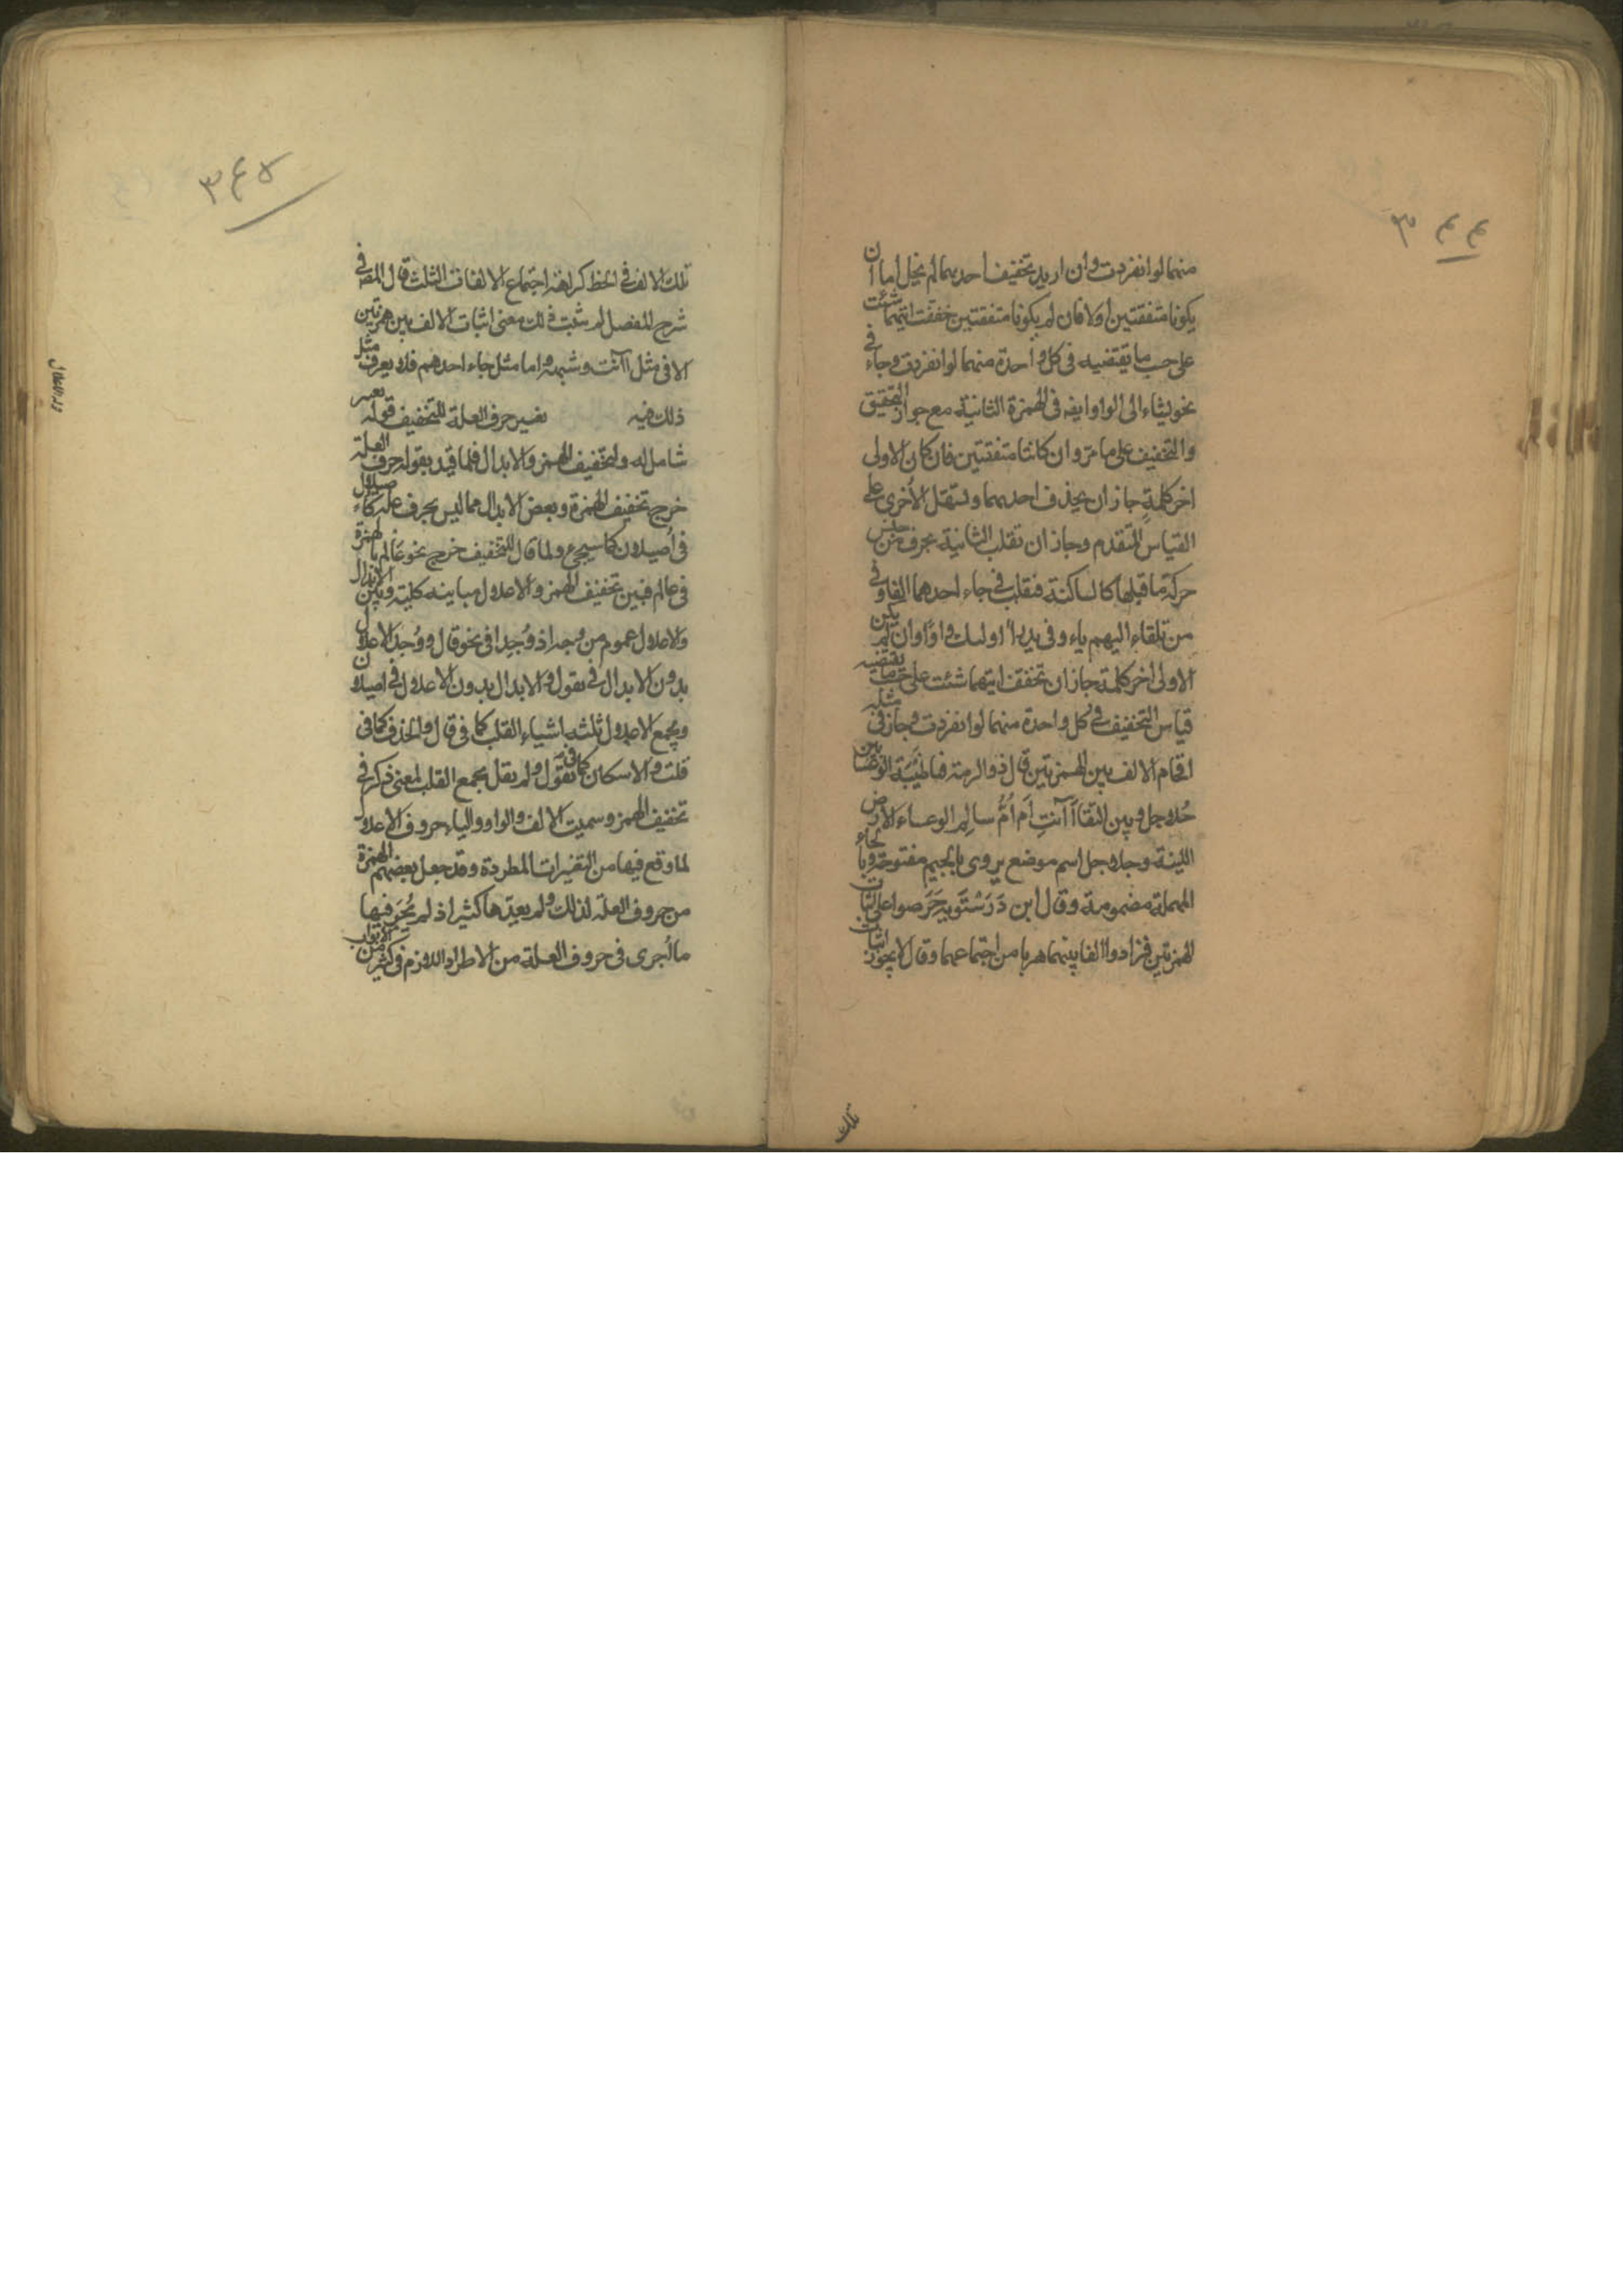 ٣٤٤
منهما لو انفردت وان اريد تخفيف احديهما لم يخل اما ان
يكونا متفقتين اولا فان لم يكونا متفقتين خففت ايتهما شئت
على حسب ما يقتضيه في كل واحدة منهما لو انفردت وجاء في
نحو يشاء الى الواو ايضه في الهمزة الثانية مع جواز التحقيق
والتخفيف على ما مر وان كانتا متفقتين فان كان الاولى
اخر كلمة جاز ان يحذف احديهما وتسهل الأخرى على
القياس المتقدم وجاز ان تقلب الثانية بحرف من جنس
حركة ما قبلها كالساكنة فتقلب في جاء احدهما الفا وفي
من تلقاء اليهم ياء وفي يدرأ اولىك واوًا وان لم يكن
الاولى اخر كلمة جاز ان تخفف ايتهما شئت على حسب ما يقتضيه
قياس التخفيف في كل واحدة منهما لو انفردت وجاز في مثله
اقحام الالف بين الهمزتين قال ذو الرمة فيا ظبية الوعساء بين
حُلاجل وبين النقا آأنتِ أم أمُّ سالِم الوعساء الارض
اللينة وجلاجل اسم موضع يروى بالجيم مفتوحة وبالحاء
المهملة مضمومة وقال ابن دَرَسْتَوَيه حَرَصوا على اثبات
الهمزتين فزادوا الفا بينهما هربا من اجتماعهما وقال لا يجوز اثبات
تلك
٣٤٥
تلك الالف في الخط كراهة اجتماع الالفات الثلث قال المصـ في
شرح المفصل لم يثبت ذلك معنى اثبات الالف بين همزتين
الا في مثل اآنت وشبهه واما مثل جاء احدهم فلا يعرف مثل
ذلك فيه تغيير حرف العلة للتخفيف قوله تغيير
شامل له ولتخفيف الهمز والابدال فلما قيد بقوله حرف العلة
خرج تخفيف الهمزة وبعض الابدال مما ليس بحرف علة كاء صيلال
في أصيلان كما سيجئ ولما قال للتخفيف خرج نحو عَالم بالهمزة
في عالم فبين تخفيف الهمز والاعلال مباينه كلية وبين الابدال
والاعلال عموم من وجه اذ وُجِدا في نحو قال ووُجِد الاعلال
بدون الابدال في يقول والابدال بدون الاعلال في اصيلان
ويجمع الاعلال ثلثه اشياء القلب كما في قال والحذف كما في
قلت والاسكان كما في يقول ولم يقل يجمع القلب لمعنى ذكر في
تخفيف الهمز وسميت الالف والواو والياء حروف الاعلال
لما وقع فيها من التغيرات المطردة وقد جعل بعضهم الهمزة
من حروف العلة لذلك ولم يعدّها كثير اذ لم يُجرَ فيها
ما اُجرى في حروف العلة من الاطراد اللازم في كثير من الابواب